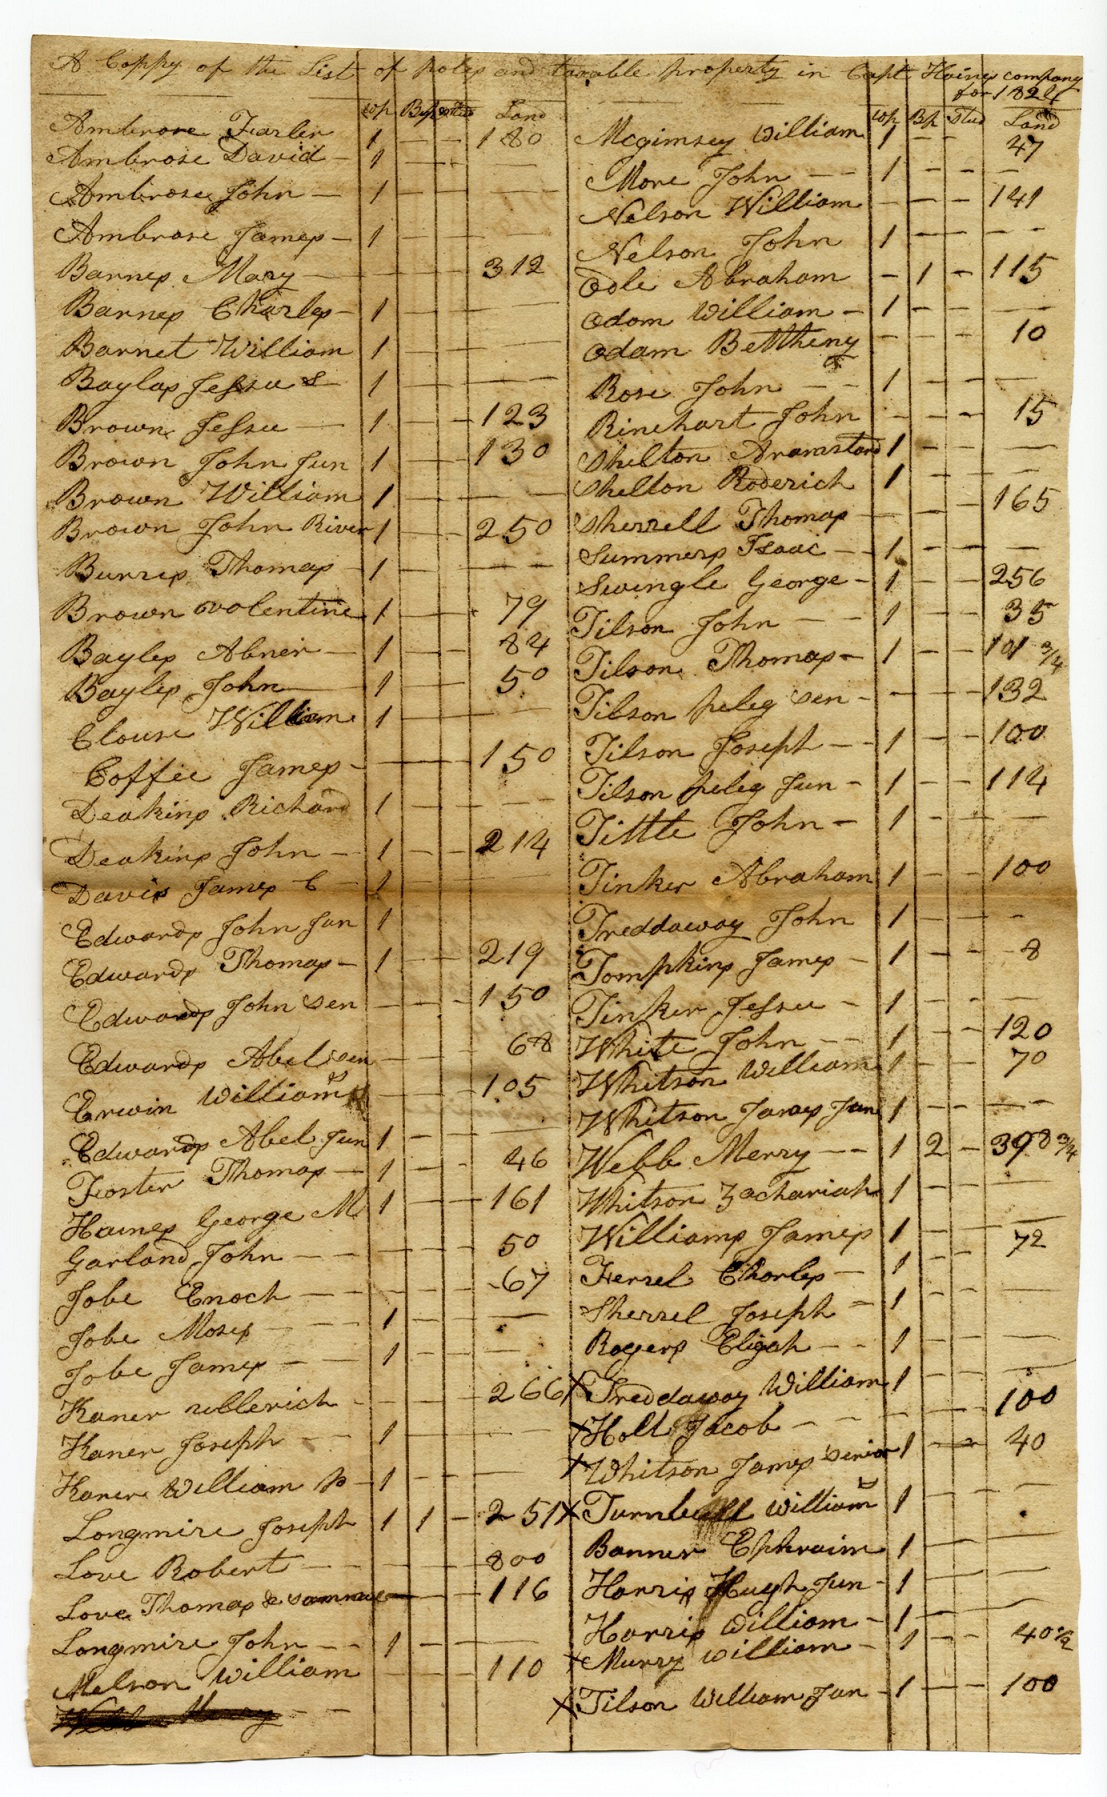 A Coppy of the List of Poles and taxable property in Capt Haines company
for 1824
wp Bp Stud Land
Ambrose Farler 1 - - 180
Ambrose David - 1 - - -
Ambrose John - 1 - - -
Ambrose James - 1 - - -
Barnes Mary - - - - 312
Barnes Charles - 1 - - -
Barnet William 1 - - -
Bayles Jessee S 1 - - -
Brown Jessee - 1 - - 123
Brown John Jun 1 - - 130
Brown William 1 - - -
Brown John River 1 - - 250
Burris Thomas - 1 - - -
Brown volentine 1 - - 79
Bayles Abner - 1 - - 84
Bayles John - 1 - - 50
Clouse William 1 - - -
Coffee James - - - - 150
Deakins Richard 1 - - -
Deakins John - 1 - - 214
Davis James C - 1 - - -
Edwards John Jun 1
Edwards Thomas - 1 - - 219
Edwards John Sen - - - 150
Edwards Abel Sen - - - 68
Erwin William - - - 105
Edwards Abel Jun 1 - - -
Foster Thomas - 1 - - 46
Haines George M 1 - - 161
Garland John - - - - 50
Jobe Enoch - - - - - 67
Jobe Moses - - 1 - - -
Jobe James - - 1 - - -
Kaner Ullerich - - - - 266
Kaner Joseph - - 1 - - -
Kaner William P - 1 - - -
Longmire Joseph 1 1 - 251
Love Robert - - - - 800
Love Thomas & Samuel - - - 116
Longmire John - - 1 - - -
Melson William - - - 110
Webb Merry - -
wp Bp Stud Land
Mcgimsey William 1 - - 47
More John - - 1 - - -
Nelson William - - - 141
Nelson John 1 - - -
Odle Abraham - 1 - 115
Odom William - 1 - - -
Odam Bettheny - - - 10
Rose John - - 1 - - -
Rinehart John - - - 15
Shelton Aramsted 1 - -
Shelton Roderich 1 - - -
Sherrell Thomas - - - 165
Summers Isaac - 1 - - -
Swingle George - 1 - - 256
Tilson John - - 1 - - 35
Tilson Thomas - 1 - - 101 3/4
Tilson peleg Sen - - - - 132
Tilson Joseph - - 1 - - 100
Tilson peleg Jun - 1 - - 114
Tittle John - 1 - - -
Tinker Abraham 1 - - 100
Treddaway John 1 - - -
Tompkins James - 1 - - 8
Tinker Jessee - 1 - - -
White John - - 1 - - 120
Whitson William 1 - - 70
Whitson James Jun 1 - - -
Webb Merry - - 1 2 - 398 3/4
Whitson Zachariah 1 - - -
Williams James 1 - - -
Ferrel Charles - 1 - - 72
Sherrel Joseph - 1 - - -
Rogers Eligah - - 1 - - -
X Treddaway William 1 - - -
X Holt Jacob - - - - - 100
X Whitson James Senior 1 - - 40
X Turnbull William 1 - - -
Banner Ephraim 1 - - -
Harris Hugh Jun - 1 - - -
Harris William - 1 - - -
X Murry William - 1 - - 40 1/2
X Tilson William Jun - 1 - - 100